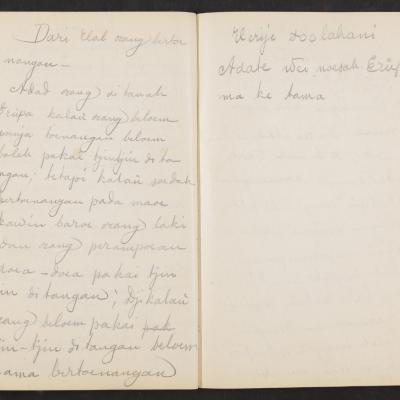 Dari Elal orang bertoe
nangan -
Adad orang di tanah
Erúpa kalau orang beloem
poenja toenangan beloem
boleh pakai tjintjin di ta
ngan; tetapi kalau soedah
bertoenangan pada maoe
kawin baroe orang laki
dan orang perampoean
doea-doea pakai tjin
jin di tangan; Djikalau
orang beloem pakai
tjin-tjin di tangan beloem
nama bertoenangan
Adate wei noesah Erúp
ma ke tama